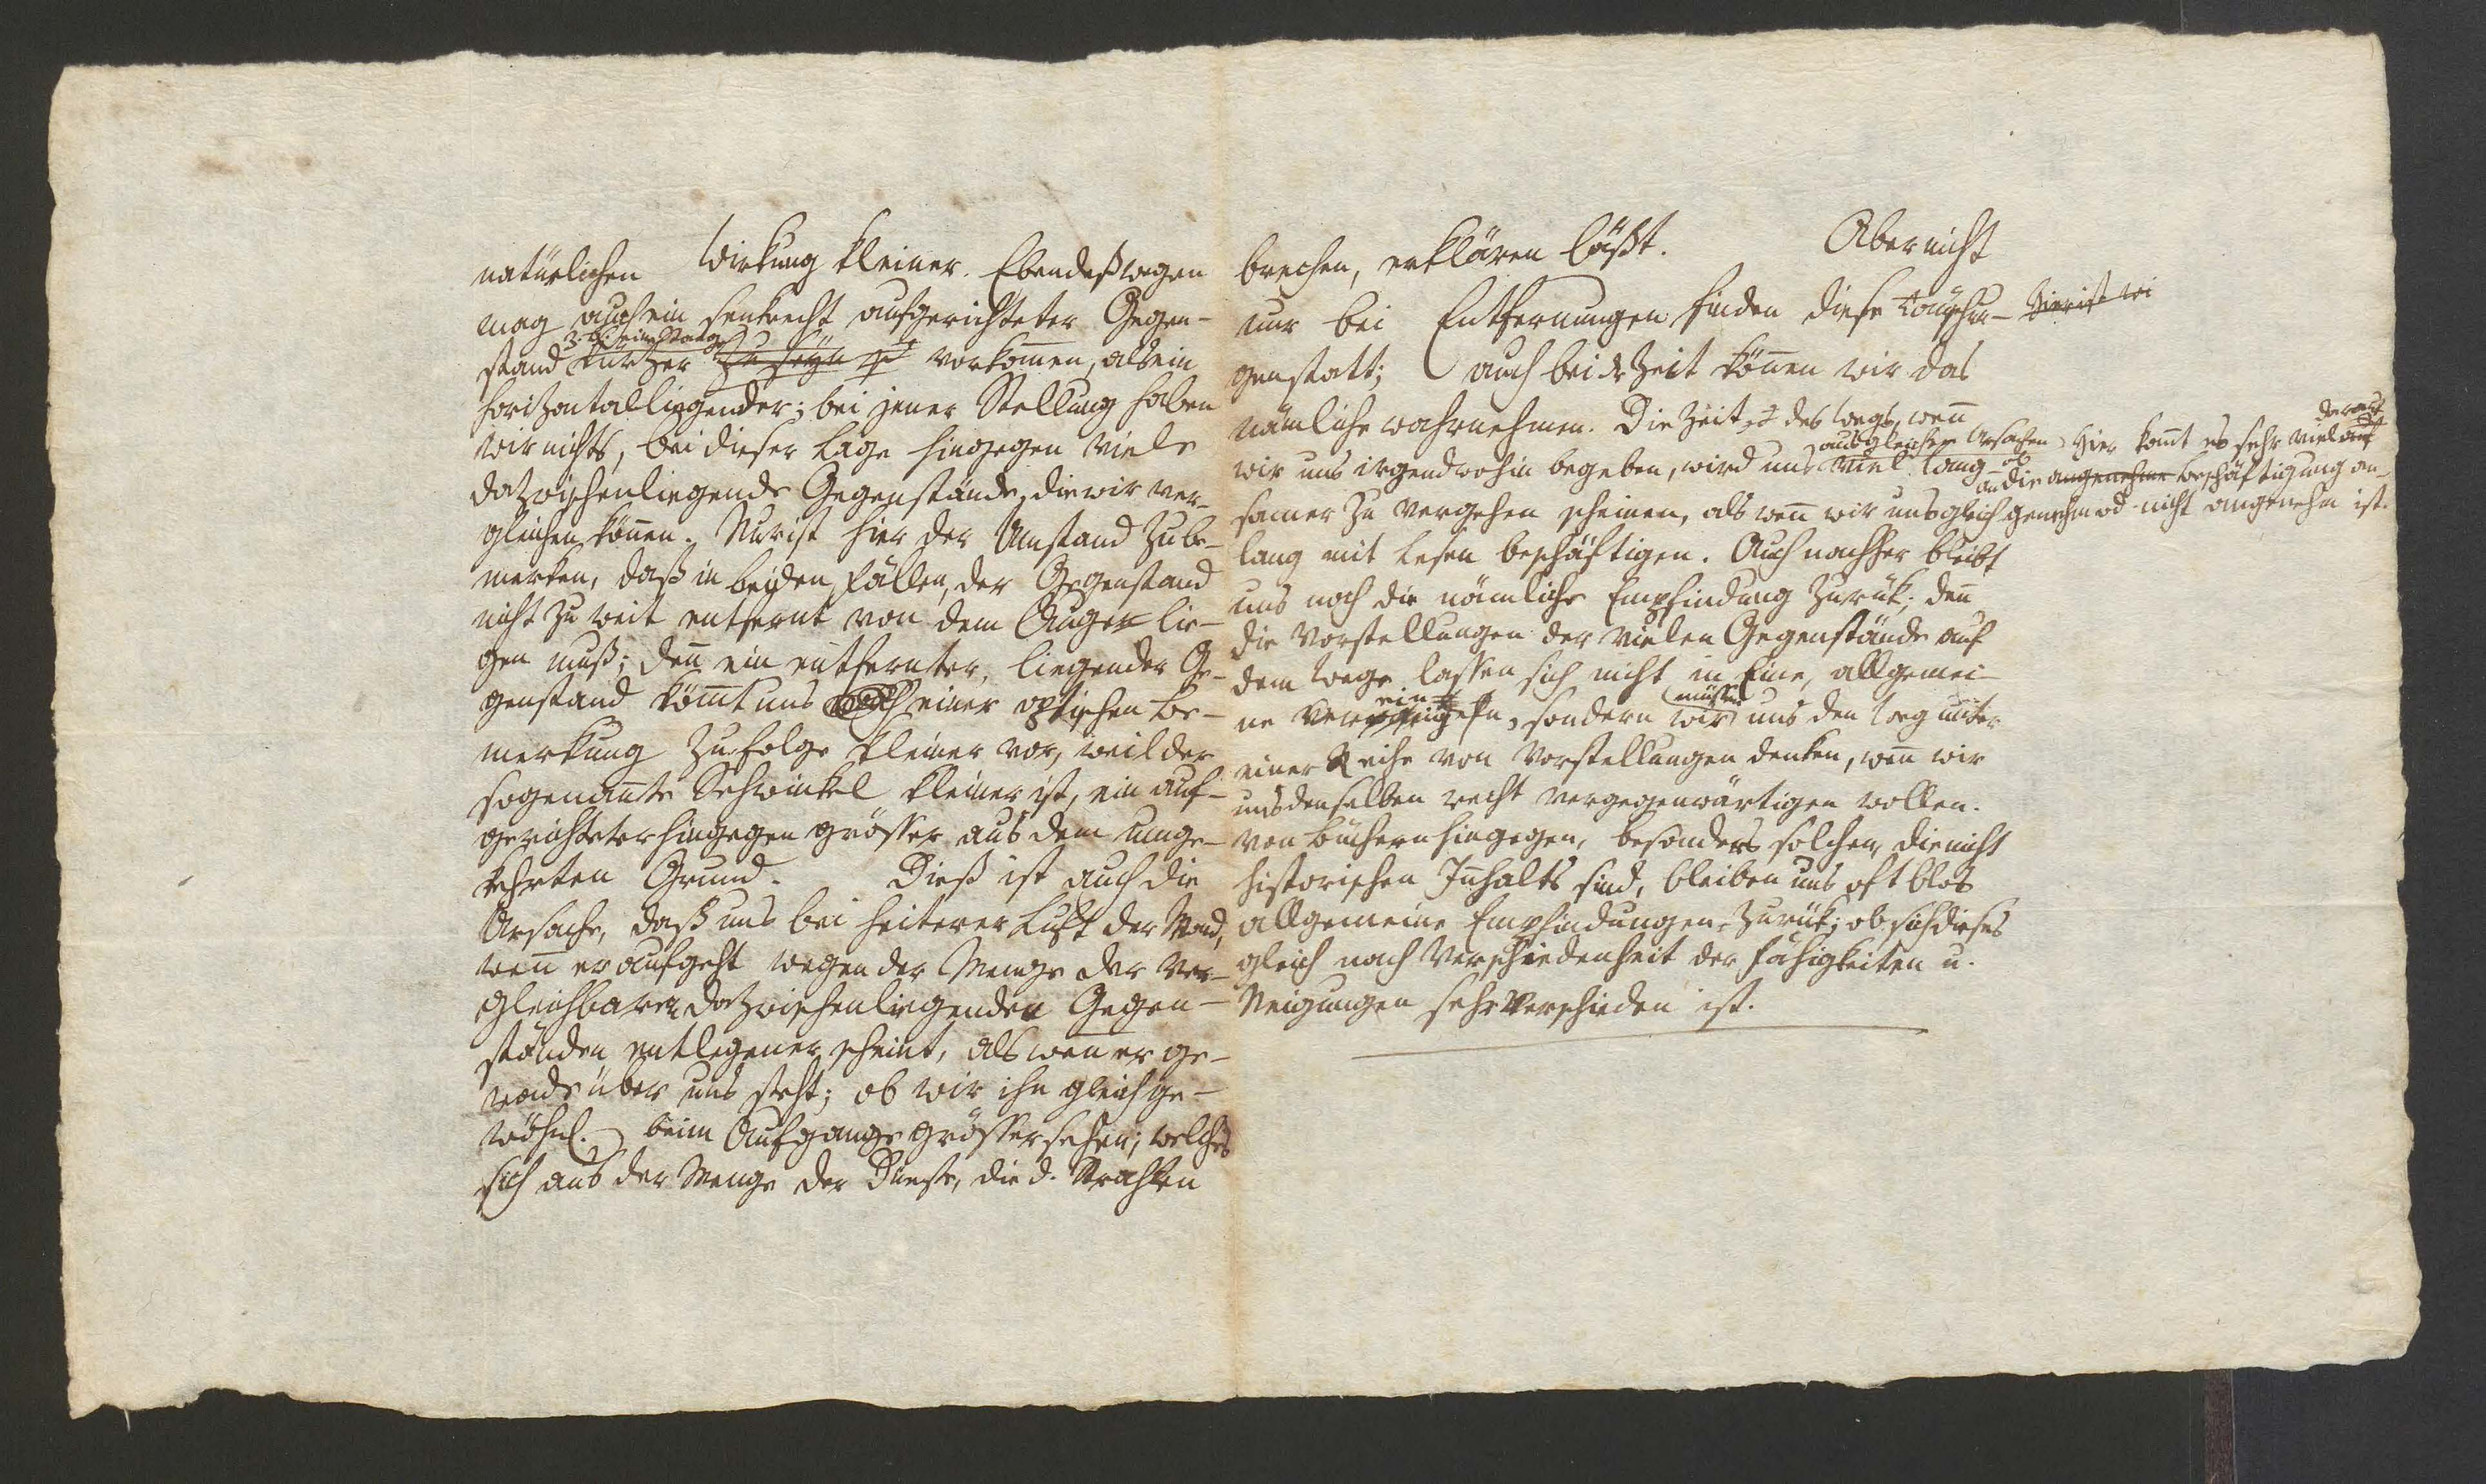 natürlichen Wirkung kleiner. Ebendeßwegen
mag auch ein senkrecht aufgerichteter Gegen-
z. B. eine Stange
stand kürzer zu seyn vorkom̄en, als ein
horizontalliegender; bei jener Stellung haben
wir nichts, bei dieser Lage hingegen viele
dazwischenliegende Gegenstände, die wir ver-
gleichen kön̄en. Nur ist hier der Umstand zu be-
merken, daß in beiden Fällen, der Gegenstand
nicht zu weit entfernt von dem Auge lie-
gen muß; den̄ ein entfernter, liegender Ge-
genstand köm̄t uns einer optischen Be-
merkung zufolge kleiner vor, weil der
sogenan̄te Sehwinkel kleiner ist, ein auf-
gerichteter hingegen grösser aus dem umge-
kehrten Grund. Dieß ist auch die
Ursache, daß uns bei heiterer Luft der Mond,
wen̄ er aufgeht wegen der Menge der ver-
gleichbaren dazwischenliegenden Gegen-
ständen entlegener scheint, als wen̄ er ge-
rade über uns steht; ob wir ihn gleich ge-
wöhnl. beim Aufgange grösser sehen; welches
sich aus der Menge der Dünste, die d. Strahlen
brechen, erklären läßt. Aber nicht
nur bei Entfernungen finden diese Täuschun-
Hier ist wi
genstatt; auch bei der Zeit kön̄en wir das
nämliche wahrnehmen. Die Zeit des Wegs, wen̄
aus gleicher Ursachen
wir uns irgendwohin begeben, wird uns viel lang-
samer zu vergehen scheinen, als wen̄ wir uns gleich
lang mit Lesen beschäftigen. Auch nachher bleibt
uns noch die nämliche Empfindung zurük; den̄
die Vorstellungen der vielen Gegenstände auf
dem Wege lassen sich nicht in Eine, allgemei-
ein
ne ver , sondern
müssen
wir uns den Weg unter
einer Reihe von Vorstellungen denken, wen̄ wir
uns denselben recht vergegenwärtigen wollen.
Von Büchern hingegen, besonders solchen, die nicht
historischen Inhalts sind, bleiben uns oft blos
allgemeine Empfindungen zurük; ob sich dieses
gleich nach Verschiedenheit der Fähigkeiten u.
Neigungen sehr verschieden ist.
Hier kom̄t es sehr viel darauf
an ob die angenehme Beschäftigung an-
genehm od. nicht angenehm ist.